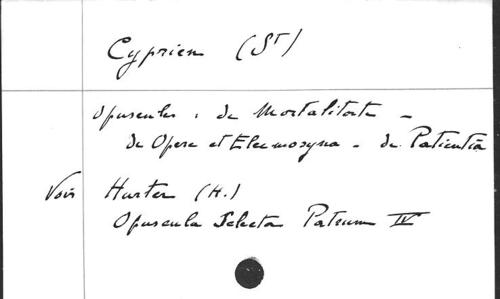 Cyprien (St)
Opuscules : de Mortalitate -
de Opere et Eleemosyna - de Patientia
Voir Hurter (H.)
Opuscula Selecta Patrum IV